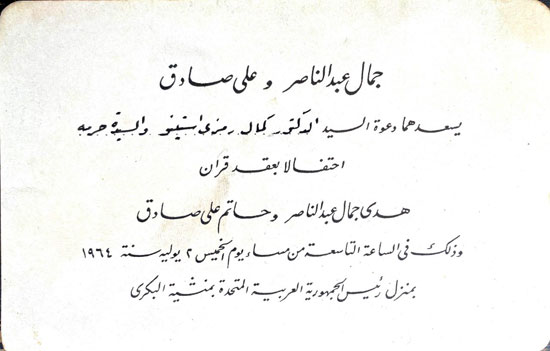 جمال عبد الناصر و على صادق
يسعدهما دعوة السيد الدكتور كمال رمزى استينو والسيدة حرمه
احتفالا بعقد قران
هدى جمال عبد الناصر و حاتم على صادق
وذلك فى الساعة التاسعة من مساء يوم الخميس ٢ يوليه سنة ١٩٦٤
بمنزل رئيس الجمهورية العربية المتحدة بمنشية البكرى